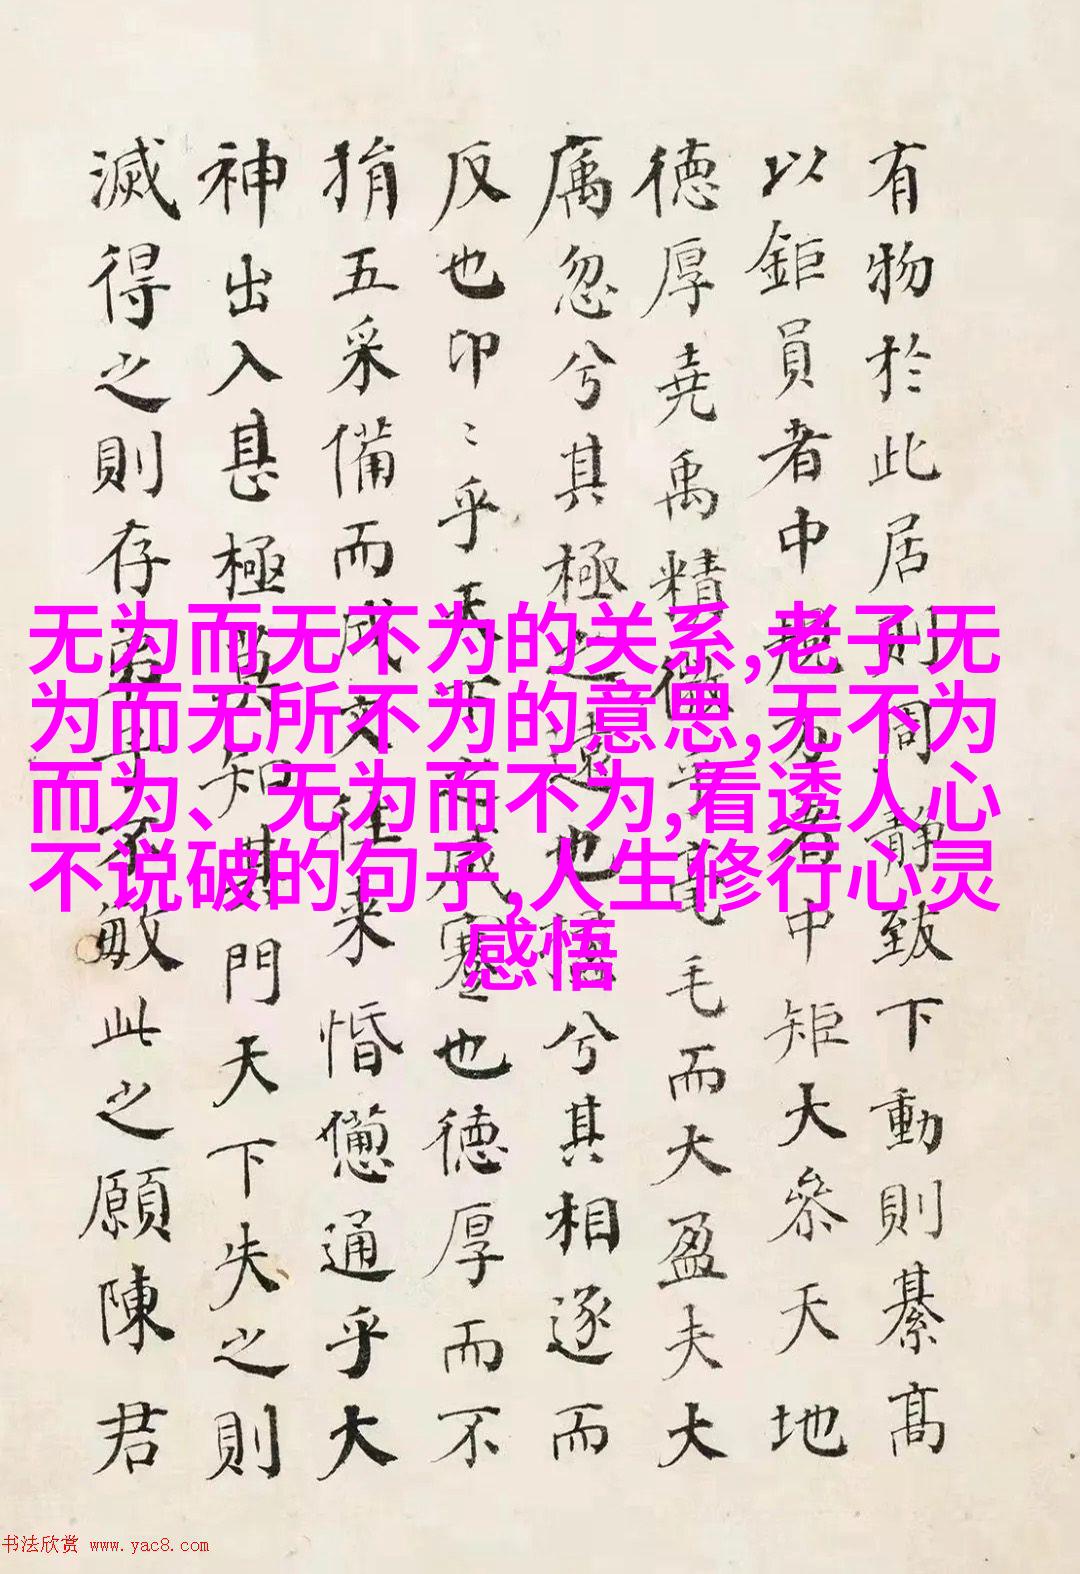 有物於此居則周靜致下動則綦高
以鉅員者中規方者中矩大參天地
德厚堯禹精微乎毫毛而大盈夫大
厲忽兮其極之遠也攭兮其相逐而
反也卬〻乎天下之咸蹇也德厚而不
捐五采備而成文往來惛憊通乎大
神出入甚極莫知其門天下失之則
滅得之則存弟子不敏此之願陳君
无为而无不为的关系,老子无
为而无所不为的意思,无不为
而为、无为而不为,看透人心
不说破的句子,人生修行心灵
感悟
书法欣赏 www.yac8.com